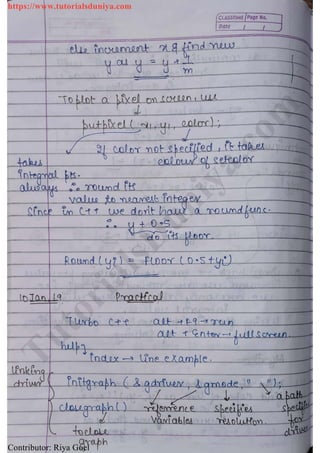 https://www.tutorialsduniya.com
CLASSTIME Page No.
Date / /
else increment x & find new
y as y = y + 1/m
To plot a pixel on screen, use
putpixel ( x1, y1, color);
If color not specified, it takes
colour of setcolor
takes
integral pts.
always ∴ round its
value to nearest integer
Since in C++ we don't have a round func.
∴ y + 0.5
do its floor.
Round (yi) = Floor (0.5+yi)
10 Jan 19 Practical
Turbo C++ alt + F9 → run
alt + Enter → full screen.
help
index → line example.
linking
driver
initgraph ( & gdriver, & gmode, " \\");
closegraph () reference specifies a path
variables resolution. specifies
to close for
graph driver
TutorialsDuniya.com
Contributor: Riya Goel